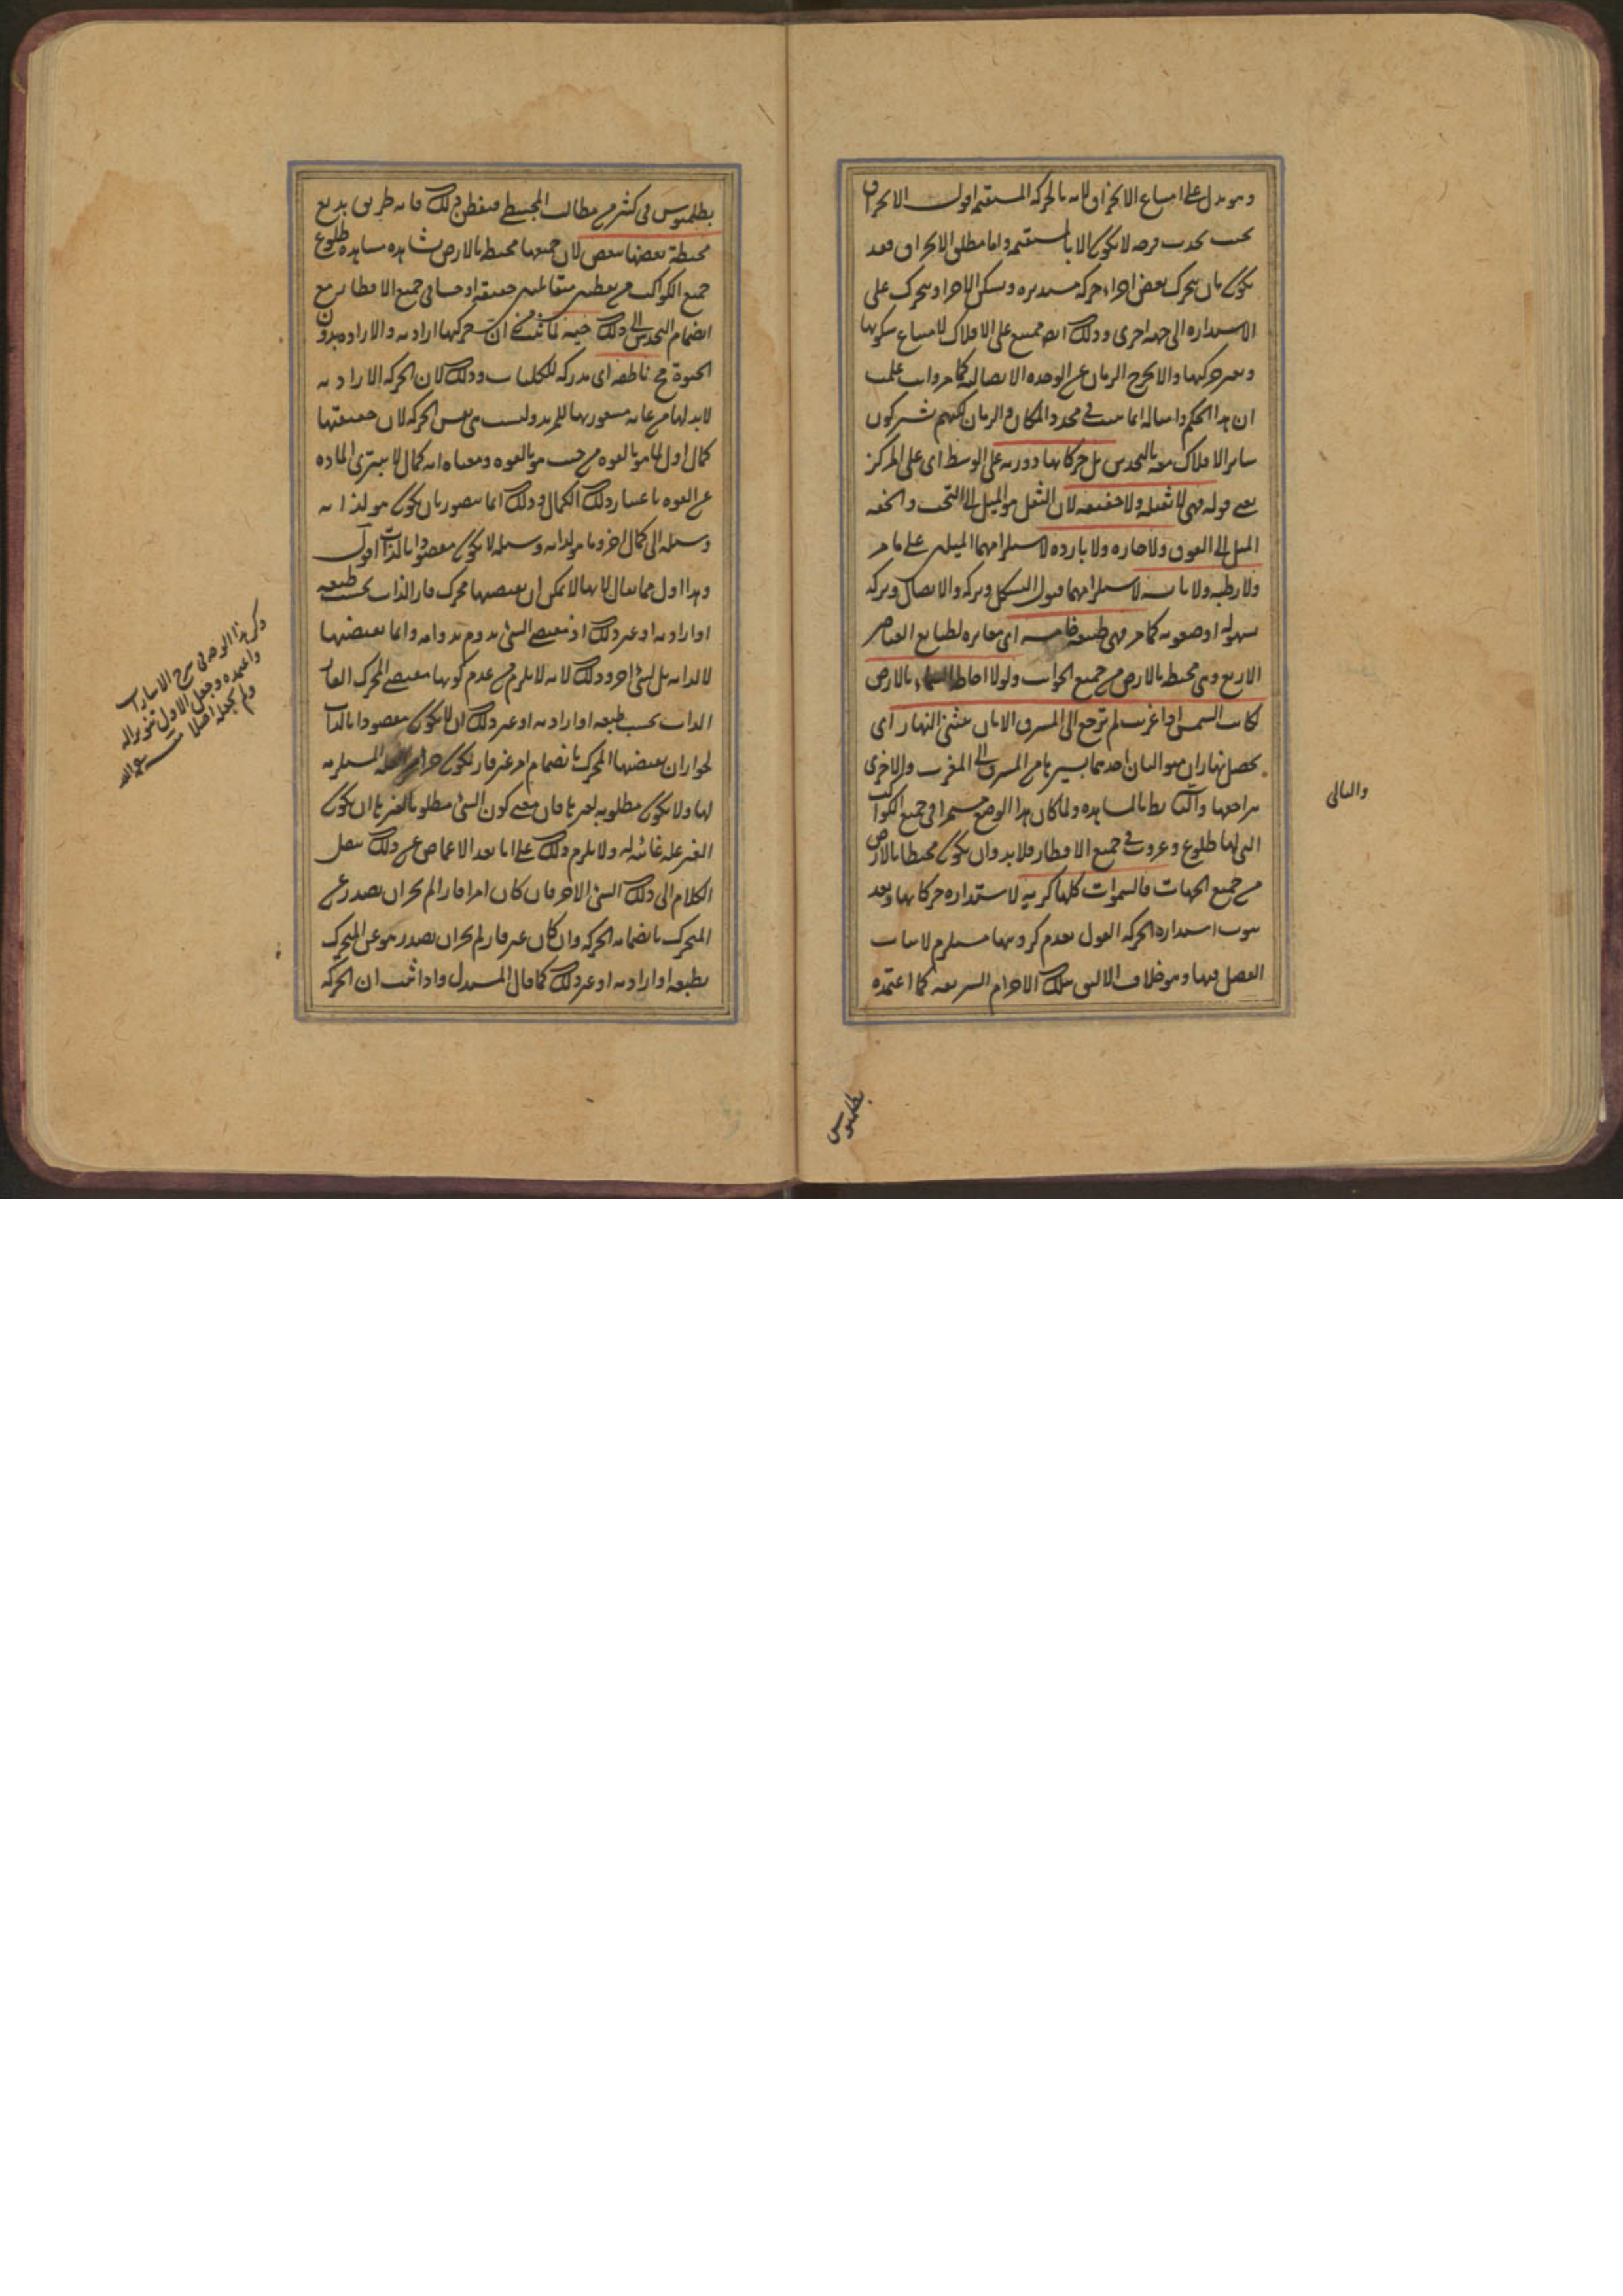 وهو يدل على امتناع الانخراق لانه بالحركة المستقيمة اقول الانخراق
بحسب فرضه لا يكون الا بالمستقيمة واما مطلق الانخراق فقد
يكون بان يتحرك بعض اجزاءه حركة مستديرة ويسكن الاخر او يتحرك على
الاستدارة الى جهة اخرى وذلك ايضا ممتنع على الافلاك لامتناع سكونها
وتغير حركتها والا لخرج الزمان عن الوحدة الاتصالية كما مر وانت علمت
ان هذا الحكم وامثاله انما يثبت في محدد المكان والزمان لكنهم يشركون
سائر الافلاك معه بالتحدس بل حركاتها دورية على الوسط اى على المركز
فهى لا ثقيلة ولا خفيفة لان الثقل هو الميل الى التحت والخفة
الميل الى الفوق ولا حارة ولا باردة لاستلزامهما الميلين على ما مر
ولا رطبة ولا يابسة لاستلزامهما قبول التشكل وتركه والاتصال وتركه
بسهولة او صعوبة كما مر فهى طبيعة خامسة اى مغايرة لطبايع العناصر
الاربع وهى محيطة بالارض من جميع الجوانب ولولا احاطة السماء بالارض
لكانت الشمس اذا غربت لم ترجع الى المشرق الا بان يثنى النهار اى
يحصل نهاران متواليان احدهما بسيرها من المشرق الى المغرب والاخرى
براجعها والتالى بط بالمشاهدة ولما كان هذا الوضع مستمرا في جميع الكواكب
التى لها طلوع وغروب في جميع الاقطار فلا بد وان يكون محيطا بالارض
من جميع الجهات فالسموات كلها كرية لاستدارة حركاتها وبعد
ثبوت استدارة الحركة القول بعدم كرويتها مستلزم لاثبات
الفضل فيها وهو خلاف الاليق بتلك الاجرام الشريفة كما اعتمده
والتالى
بطلميوس
بطلميوس في كثير من مطالب المجسطى فتفطن ذلك فانه طريق بديع
محيطة بعضها ببعض لان جميعها محيط بالارض بشاهدة مشاهدة طلوع
جميع الكواكب من نقطتين متقابلتين حقيقة او حسا في جميع الاقطار مع
انضمام التحدس الى ذلك حية لما ثبت من ان حركتها ارادية والارادة بدون
الحيوة مح ناطقة اى مدركة للكليات وذلك لان الحركة الارادية
لابد لها من غاية مشعور بها للمريد وليست هى نفس الحركة لان حقيقتها
كمال اول لما هو بالقوة من حيث هو بالقوة ومعناه انه كمال لا يتبرى المادة
عن القوة باعتبار ذلك الكمال وذلك انما يتصور بان يكون هو لذاته
وسيلة الى كمال اخر وما هو لذاته وسيلة لا يكون مقصودا بالذات اقول
وهذا اول مما يقال لانها لا يمكن ان يقتضيها محرك قار الذات بحسب طبيعة
او ارادة او غير ذلك اذ مقتضى الشئ يدوم بدوامه وانما يقتضيها
لا لذاته بل لشئ اخر وذلك لانه لا يلزم من عدم كونها مقتضى المحرك القار
الذات بحسب طبيعة او ارادة او غير ذلك ان لا يكون مقصودا بالذات
لجواز ان يقتضيها المحرك بانضمام امر غير قار يكون جزء العلة المستلزمة
لها ولا يكون مطلوبة لغيرها فان معنى كون الشئ مطلوبا لغيره ان يكون
الغير علة غائية له ولا يلزم ذلك على انا بعد الاغماض عن ذلك ننقل
الكلام الى ذلك الشئ الاخر فان كان امرا قارا لم يجز ان يصدر عن
المتحرك بانضمامه الحركة وان كان غير قار لم يجز ان يصدر هو عن المتحرك
بطبيعة او ارادة او غير ذلك كما قال المستدل واذا ثبت ان الحركة
ذكر هذا الوجه في شرح الاشارات
واعتمده وجعل الاول تنويرا له
ولم يجعله اصلا